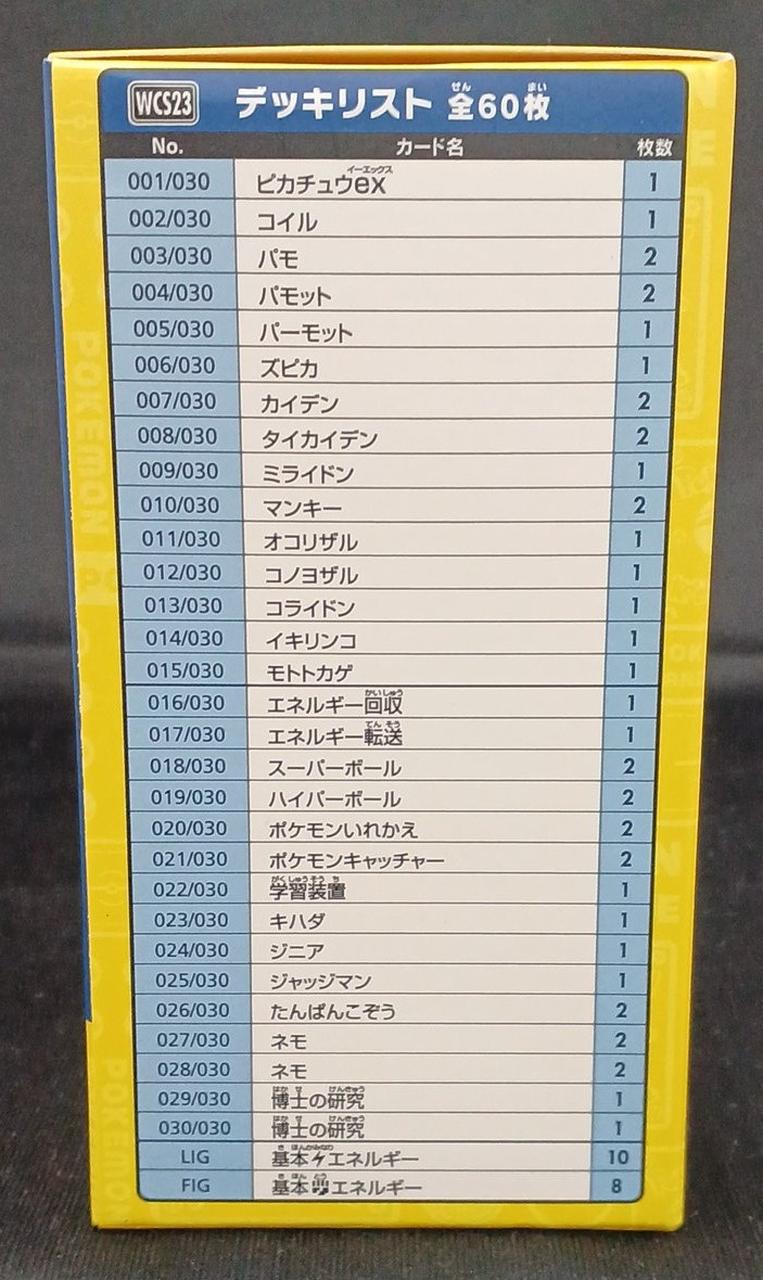 WCS23 デッキリスト 全60枚
ぜん まい
No. カード名 枚数
001/030 ピカチュウex 1
イーエックス
002/030 コイル 1
003/030 パモ 2
004/030 パモット 2
005/030 パーモット 1
006/030 ズピカ 1
007/030 カイデン 2
008/030 タイカイデン 2
009/030 ミライドン 1
010/030 マンキー 2
011/030 オコリザル 1
012/030 コノヨザル 1
013/030 コライドン 1
014/030 イキリンコ 1
015/030 モトトカゲ 1
016/030 エネルギー回収 1
かいしゅう
017/030 エネルギー転送 1
てんそう
018/030 スーパーボール 2
019/030 ハイパーボール 2
020/030 ポケモンいれかえ 2
021/030 ポケモンキャッチャー 2
022/030 学習装置 1
がくしゅうそうち
023/030 キハダ 1
024/030 ジニア 1
025/030 ジャッジマン 1
026/030 たんぱんこぞう 2
027/030 ネモ 2
028/030 ネモ 2
029/030 博士の研究 1
はかせ けんきゅう
030/030 博士の研究 1
はかせ けんきゅう
LIG 基本エネルギー 10
きほんかみなり
FIG 基本エネルギー 8
きほんとう
POKEMON
POKEMON